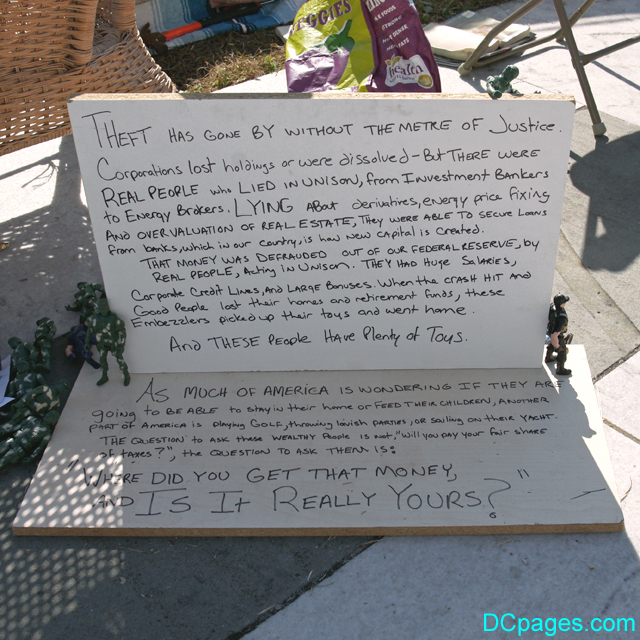 VEGGIES
THEFT HAS GONE BY WITHOUT THE METRE OF JUSTICE.
Corporations lost holdings or were dissolved - BUT THERE WERE
REAL PEOPLE who LIED IN UNISON, from Investment Bankers
to Energy Brokers. LYING About derivatives, energy price fixing
AND OVERVALUATION OF REAL ESTATE, They WERE ABLE TO SECURE LOANS
from banks, which in our country, is how New CAPITAL is CREATED.
THAT MONEY WAS DEFRAUDED OUT OF OUR FEDERAL RESERVE, by
REAL PEOPLE, Acting IN UNISON. THEY HAD HUGE SALARIES,
Corporate Credit Lines, AND LARGE BONUSES. When the CRASH HIT AND
Good People lost their homes and retirement funds, these
Embezzlers picked up their toys and went home.
And THESE People Have Plenty of Toys.
AS MUCH OF AMERICA IS WONDERING IF THEY ARE
going to BE ABLE to stay in their home or FEED THEIR CHILDREN, ANOTHER
part of America is playing GOLF, throwing lavish parties, or sailing on their YACHT.
THE QUESTION to ASK these WEALTHY People is not, "will you pay your fair share
of taxes?", the QUESTION TO ASK THEM IS:
"WHERE DID YOU GET THAT MONEY,
AND IS IT REALLY YOURS?"
DCpages.com